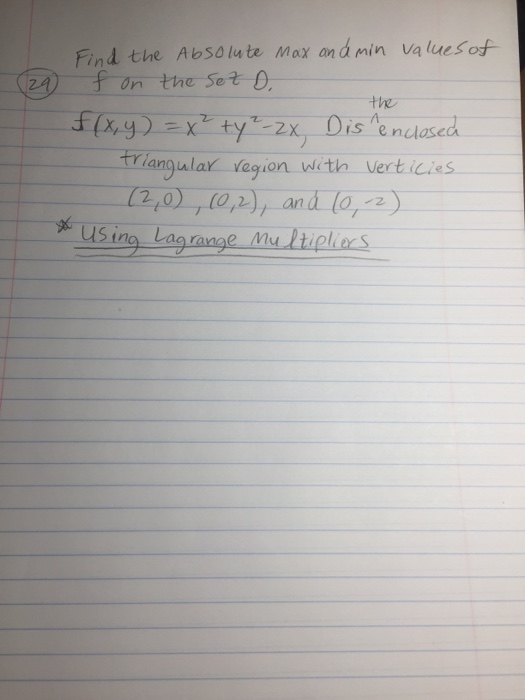 Find the Absolute Max and min values of
29 f on the set D.
the
f(x,y) = x² + y² - 2x, D is ^ enclosed
triangular region with verticies
(2,0), (0,2), and (0,-2)
* Using Lagrange Multipliers